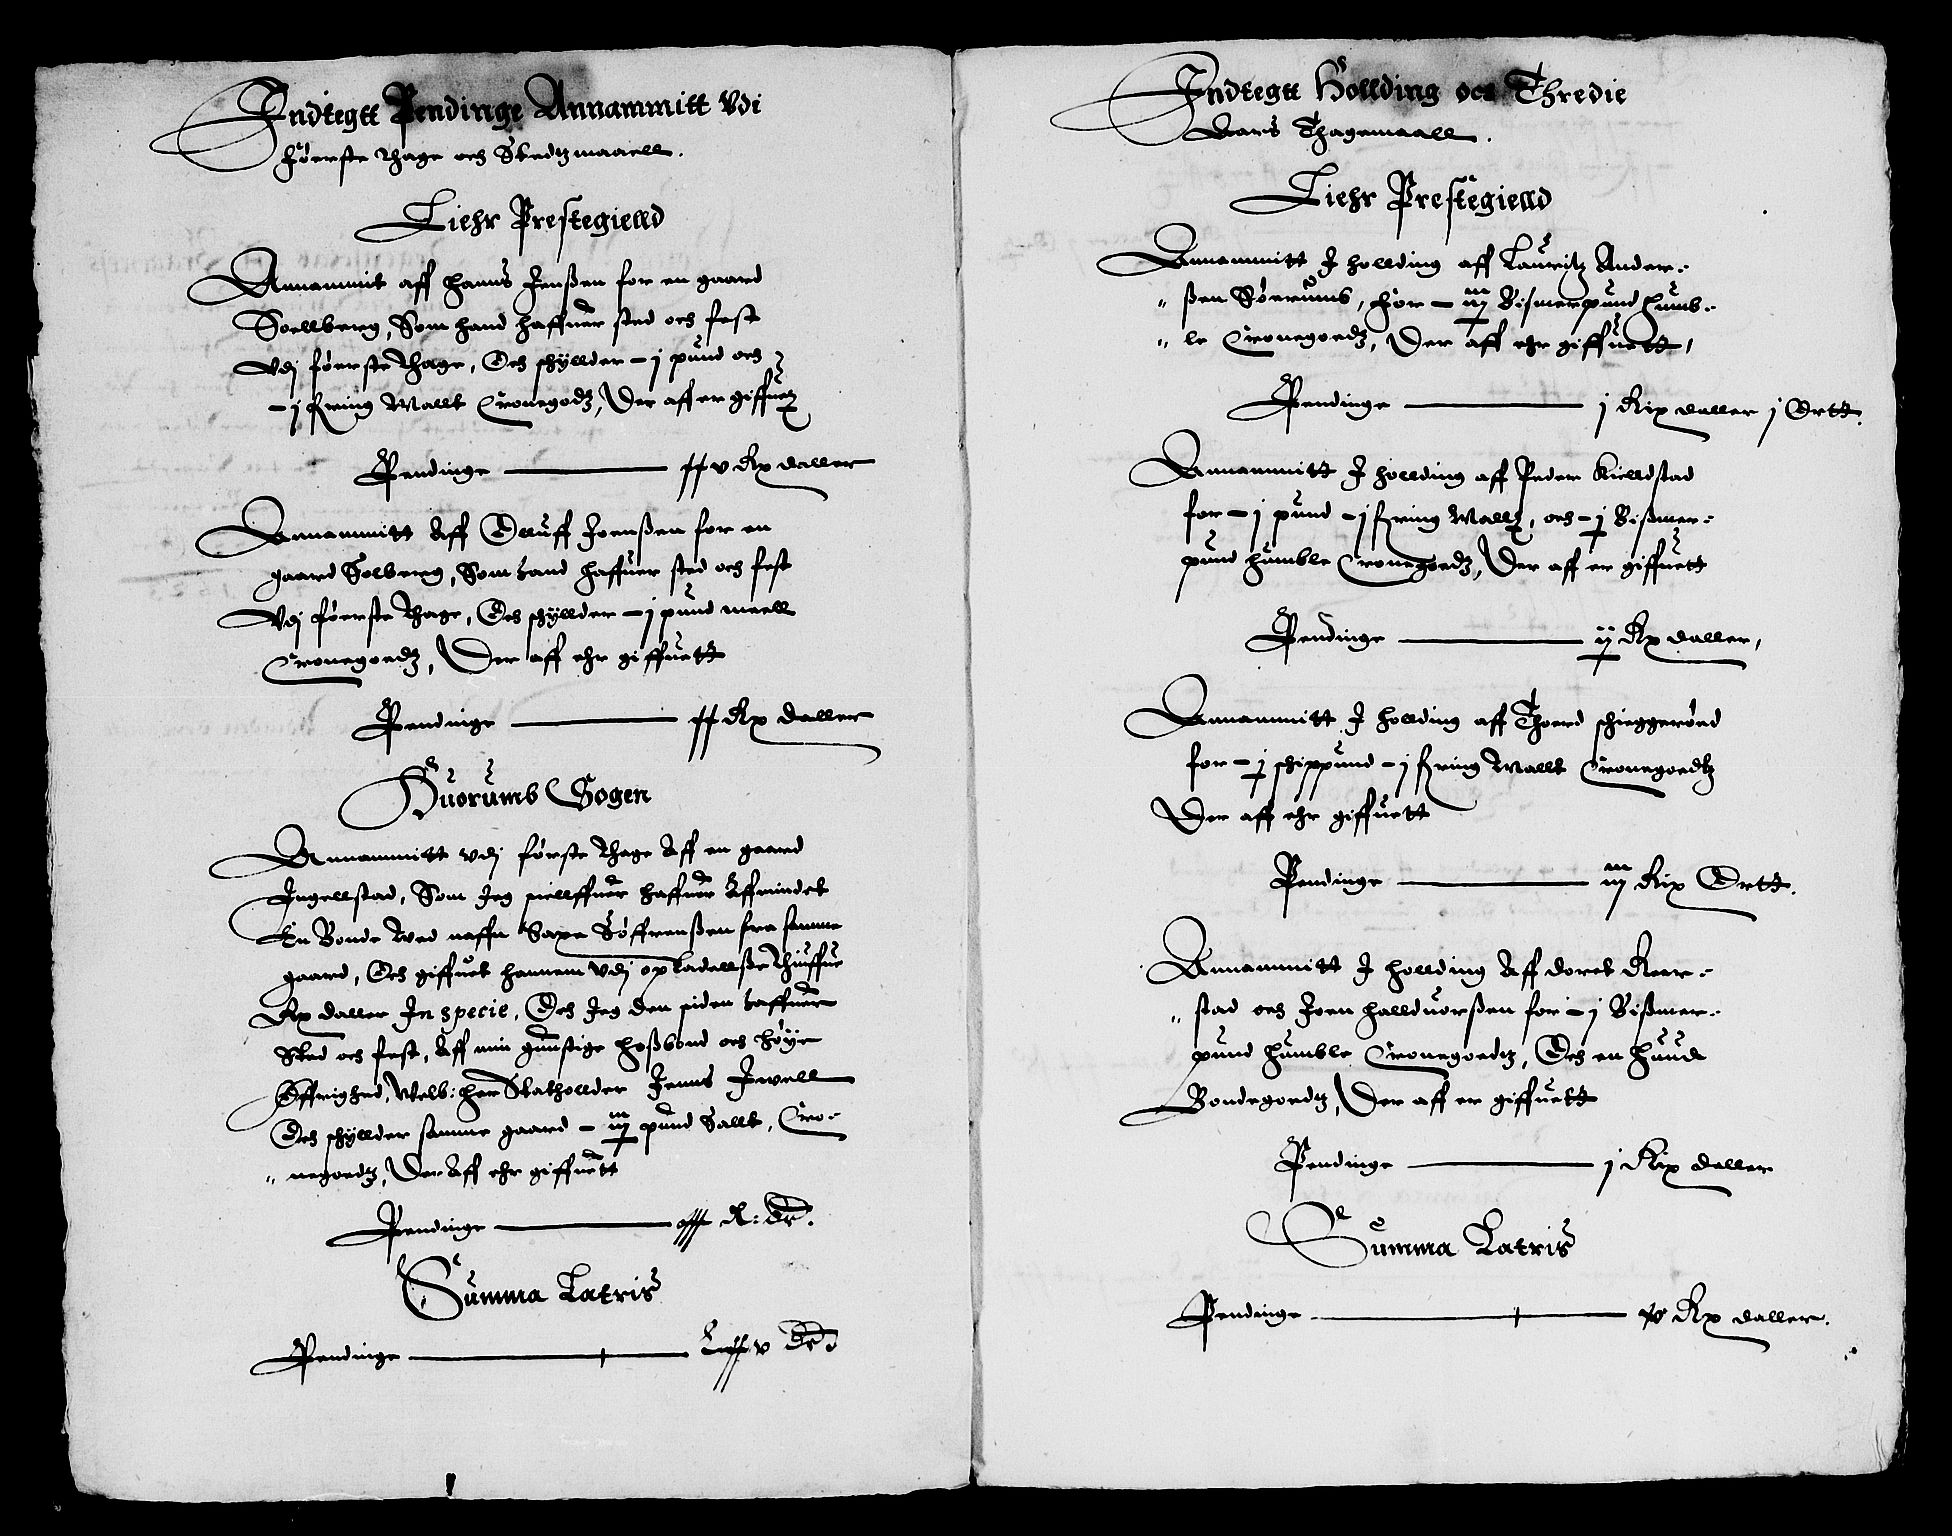 Indtegtt Pendinge Annammitt Vdi
føerste thage och Stedtzmaaell.
Liehr Prestegielld
Annammit aff Hanns Jenßen for en gaard
Soellberg, Som hand haffuer sted och fest
Vdj føerste thage, Och schyllder - j pund och
- j fiering Mallt Cronegodtz, Der aff er giffuetz
Pendinge v Rx daller
Annammitt Aff Olluff Joenßen for en
gaard Solberg, Som hand haffuer sted och fest
Vdj føerste thage, Och schyllder - j pund meell
Cronegoedtz, Der aff ehr giffuett
Pendinge Rx daller
Huorumb Sogen
Annammitt vdj første thage Aff en gaard
Ingellstad, Som Jeg siellffuer haffuer Affmindet
En Bonde Wed naffn Saxe Søffrenßen fra samme
gaard, Och giffuet hannem Vdj opladellße thiuffue
Rx daller In specie, Och Jeg den siden haffuer
Sted och fest, Aff min gunstige hoßbond och høye
Øffrighed, Welb: her Statholder Jenns Jwell
Och schyllder samme gaard - iij pund Sallt, Cro-
" negoedtz, Der Aff ehr giffuett
Pendinge R: dr.
Summa Latris
Pendinge
Indtegtt Hollding och Thredie
Aars Thagemaall.
Liehr Prestegielld
Annammitt J hollding aff Lauritz Ander-
" ßen Sørrumb, for - iij Bismerpund humb-
" le Cronegoedtz, Der aff ehr giffuett,
Pendinge j Rix daller j Ortt.
Annammitt J hollding aff Peder Kielldstad
for - j pund - j fiering Mallt, och - j Bißmer-
pund humble Cronegoedtz, Der aff er giffuett
Pendinge ij Rx daller,
Annammitt J hollding aff Thoerd schieggerød
for - j schippund - j fiering Mallt Cronegoedtz
Der aff ehr giffuett
Pendinge iij Rix Ortt.
Annammitt J hollding Aff doret Kier-
" stad och Joen halduorßen for - j Bißmer-
pund humble Cronegoedtz, Och en huude
Bondegoedtz, Der aff er giffuett
Pendinge j Rix daller
Summa Latris
Pendinge v Rx daller.